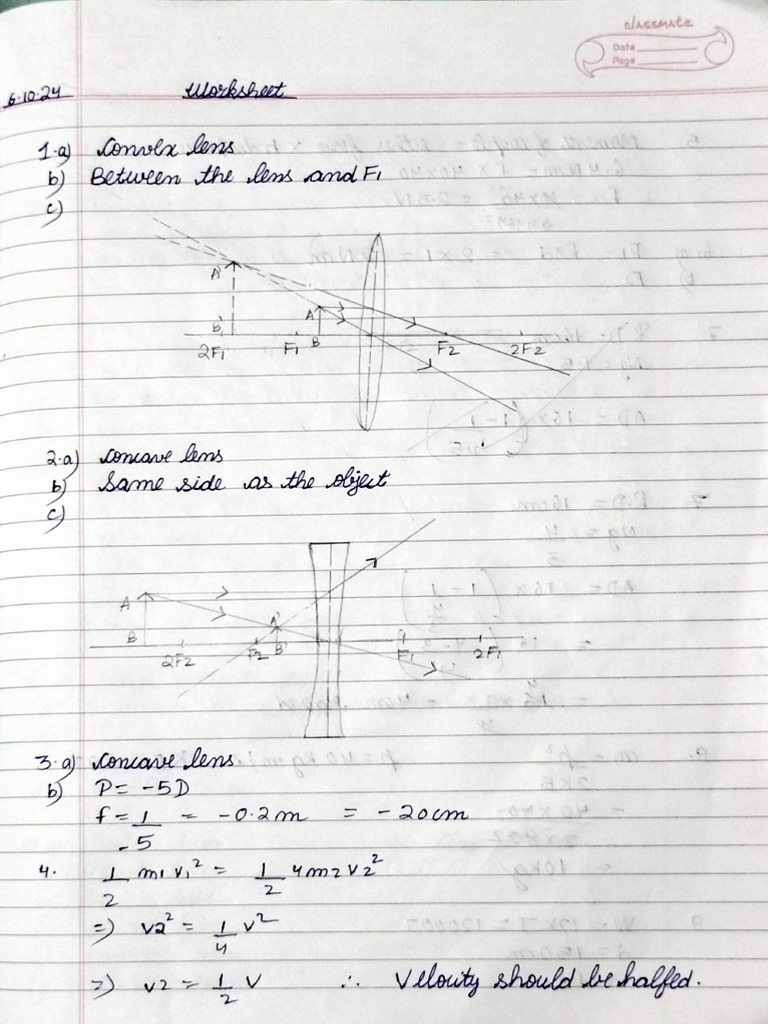 classmate
Date
Page
6.10.24 Worksheet
1.a) Convex lens
b) Between the lens and F1
c)
A'
A
B' B
2F1 F1 F2 2F2
2.a) concave lens
b) Same side as the object
c)
A A'
B B'
2F2 F2 F1 2F1
3.a) concave lens
b) P = -5D
f = 1/-5 = -0.2m = -20cm
4. 1/2 m1 v1² = 1/2 4m2 v2²
=) v2² = 1/4 v²
=) v2 = 1/2 v ∴ Velocity should be halfed.